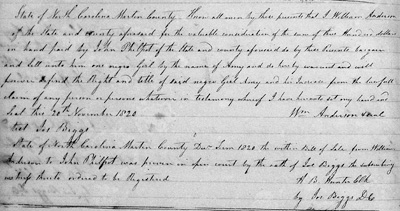 State of North Carolina Martin County. Know all men by these presents that I William Anderson
of the State and county aforesaid for the valuable consideration of the sum of three Hundred dollars
in hand paid by John Philpot of the State and county aforesaid do by these Presents bargain
and sell unto him one negro Girl by the name of Amy and do hereby warrant and will
forever Defend the Right and title of said negro Girl Amy and her Increase from the lawfull
claim of any person or persons whatever in testimony whereof I have hereunto set my hand and
Seal this 20th November 1820 Wm Anderson seal
Test Jos Biggs
State of North Carolina Martin County Decr Term 1820 the within Bill of Sale from William
Anderson to John Philpot was proven in open court by the oath of Jos Biggs the subscribing
witness thereto ordered to be Registered
H B Hunter Clk
by Jos Biggs D C